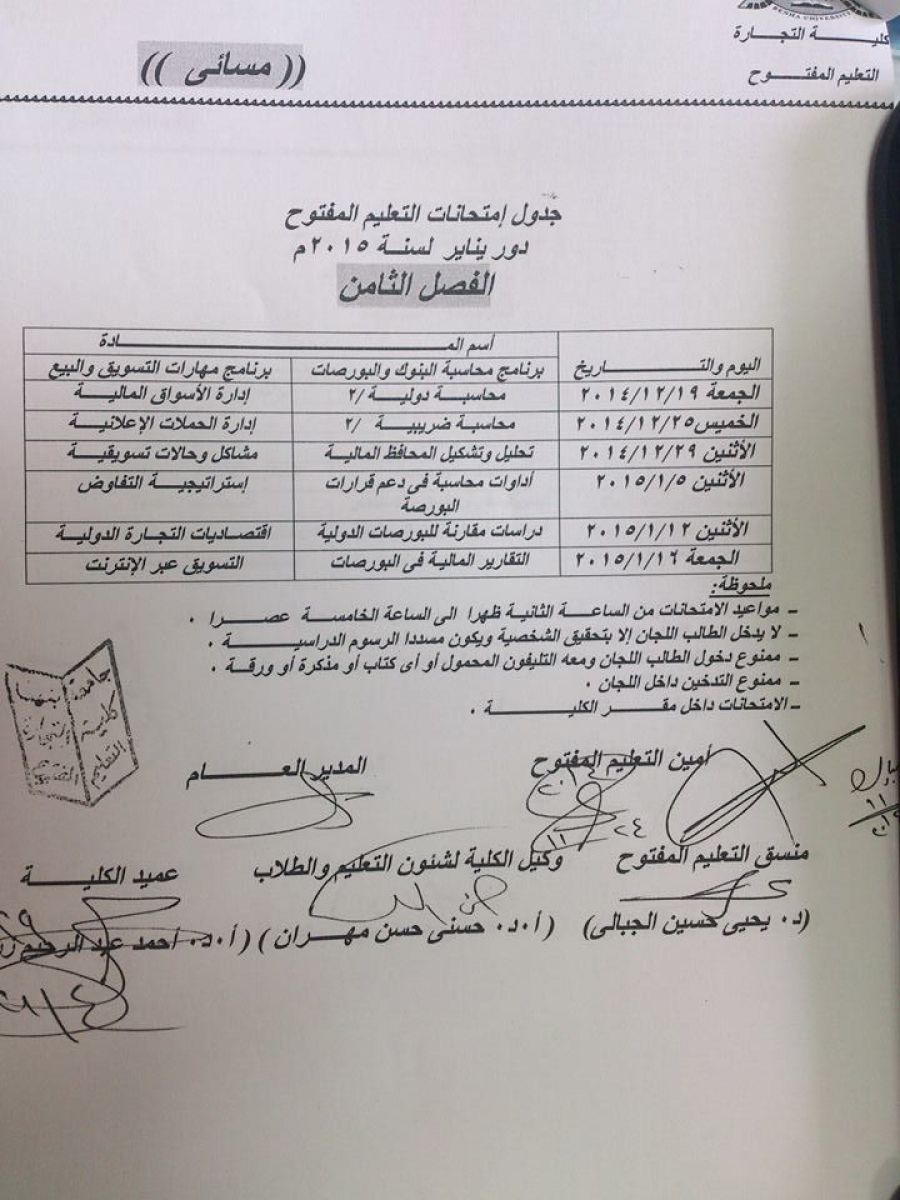 BENHA UNIVERSITY
كليـــــة التجـــارة
التعليم المفتـــــوح
(( مسائى ))
جدول إمتحانات التعليم المفتوح
دور يناير لسنة ٢٠١٥م
الفصل الثامن
اليوم والتـــــــــاريخ
أسم المـــــــــــــــــادة
برنامج محاسبة البنوك والبورصات
برنامج مهارات التسويق والبيع
الجمعة ٢٠١٤/١٢/١٩ محاسبـة دوليـة /٢ إدارة الأسواق الماليـة
الخميس٢٠١٤/١٢/٢٥ محاسبة ضريبيـة /٢ إدارة الحملات الإعلانية
الأثنين ٢٠١٤/١٢/٢٩ تحليل وتشكيل المحافظ المالية مشاكل وحالات تسويقية
الأثنين ٢٠١٥/١/٥ أداوات محاسبة فى دعم قرارات البورصة إستراتيجيـة التفاوض
الأثنين ٢٠١٥/١/١٢ دراسات مقارنة للبورصات الدولية اقتصاديات التجارة الدوليـة
الجمعة ٢٠١٥/١/١٦ التقارير المالية فى البورصات التسويق عبر الإنترنت
ملحوظة:
ـ مواعيد الامتحانات من الساعـــة الثانية ظهرا الى الساعة الخامسـة عصـــرا .
ـ لا يدخل الطالب اللجان إلا بتحقيق الشخصية ويكون مسددا الرسوم الدراسيـــة .
ـ ممنوع دخول الطالب اللجان ومعه التليفون المحمول أو أى كتاب أو مذكرة أو ورقـة .
ـ ممنوع التدخين داخل اللجان .
ـ الامتحانات داخل مقـــر الكليـــــة .
جامعة بنها
كلية التجارة
التعليم المفتوح
أمين التعليم المفتوح
المدير العـــــــام
٢٤
١١
منسق التعليم المفتوح
وكيل الكلية لشئون التعليم والطلاب
عميد الكليـــــة
(د. يحيى حسين الجبالى)
(أ.د. حسنى حسن مهـران)
(أ.د. أحمد عبد الرحيم